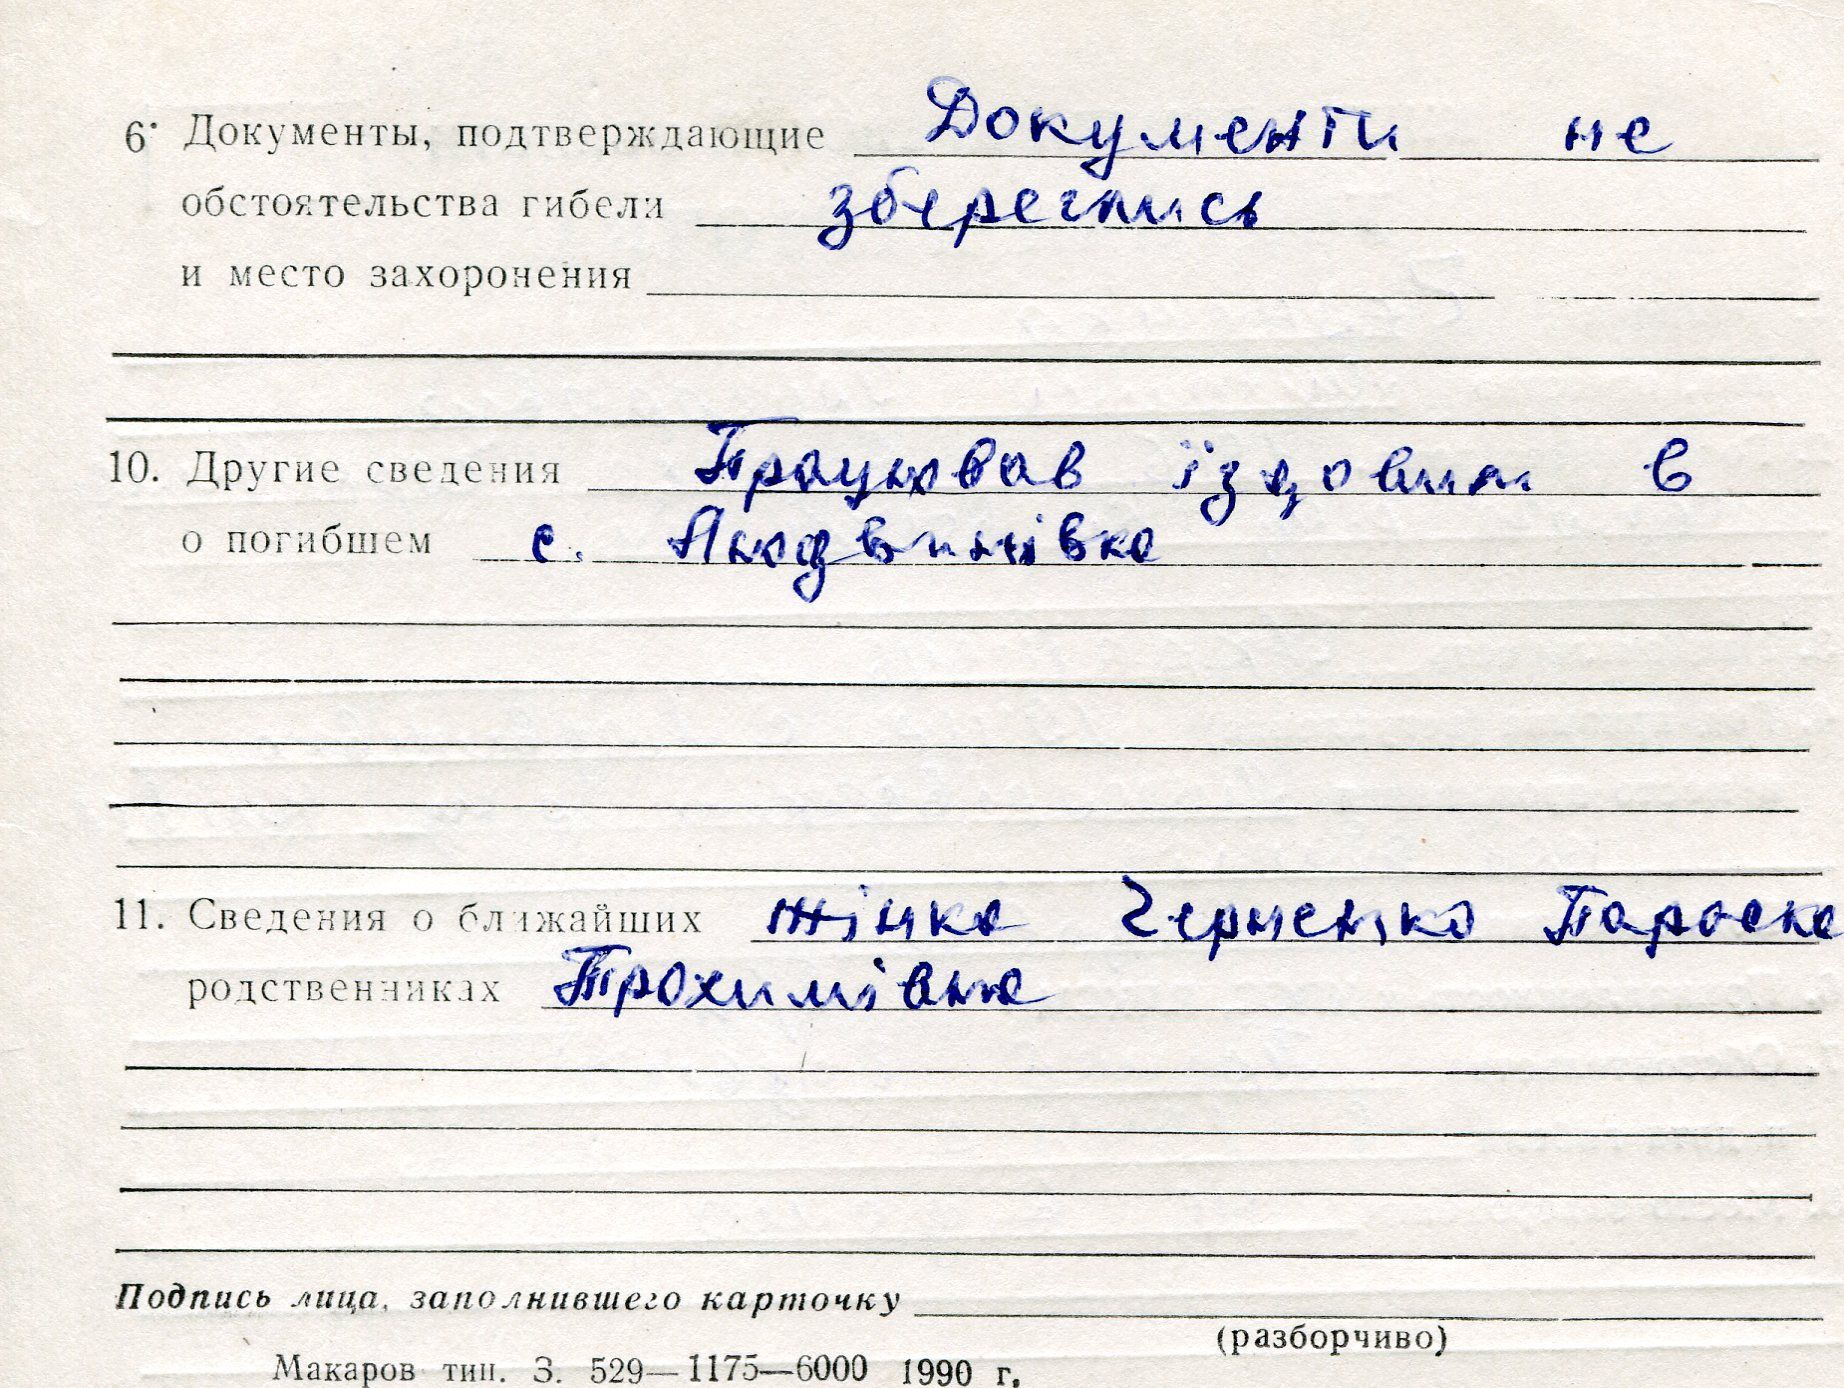 6. Документы, подтверждающие Документи не
обстоятельства гибели збереглись
и место захоронения
10. Другие сведения Працював їздовим в
о погибшем с. Людвинівка
11. Сведения о ближайших жінка Черненко Параска
родственниках Трохимівна
Подпись лица, заполнившего карточку
(разборчиво)
Макаров тип. З. 529—1175—6000 1990 г.